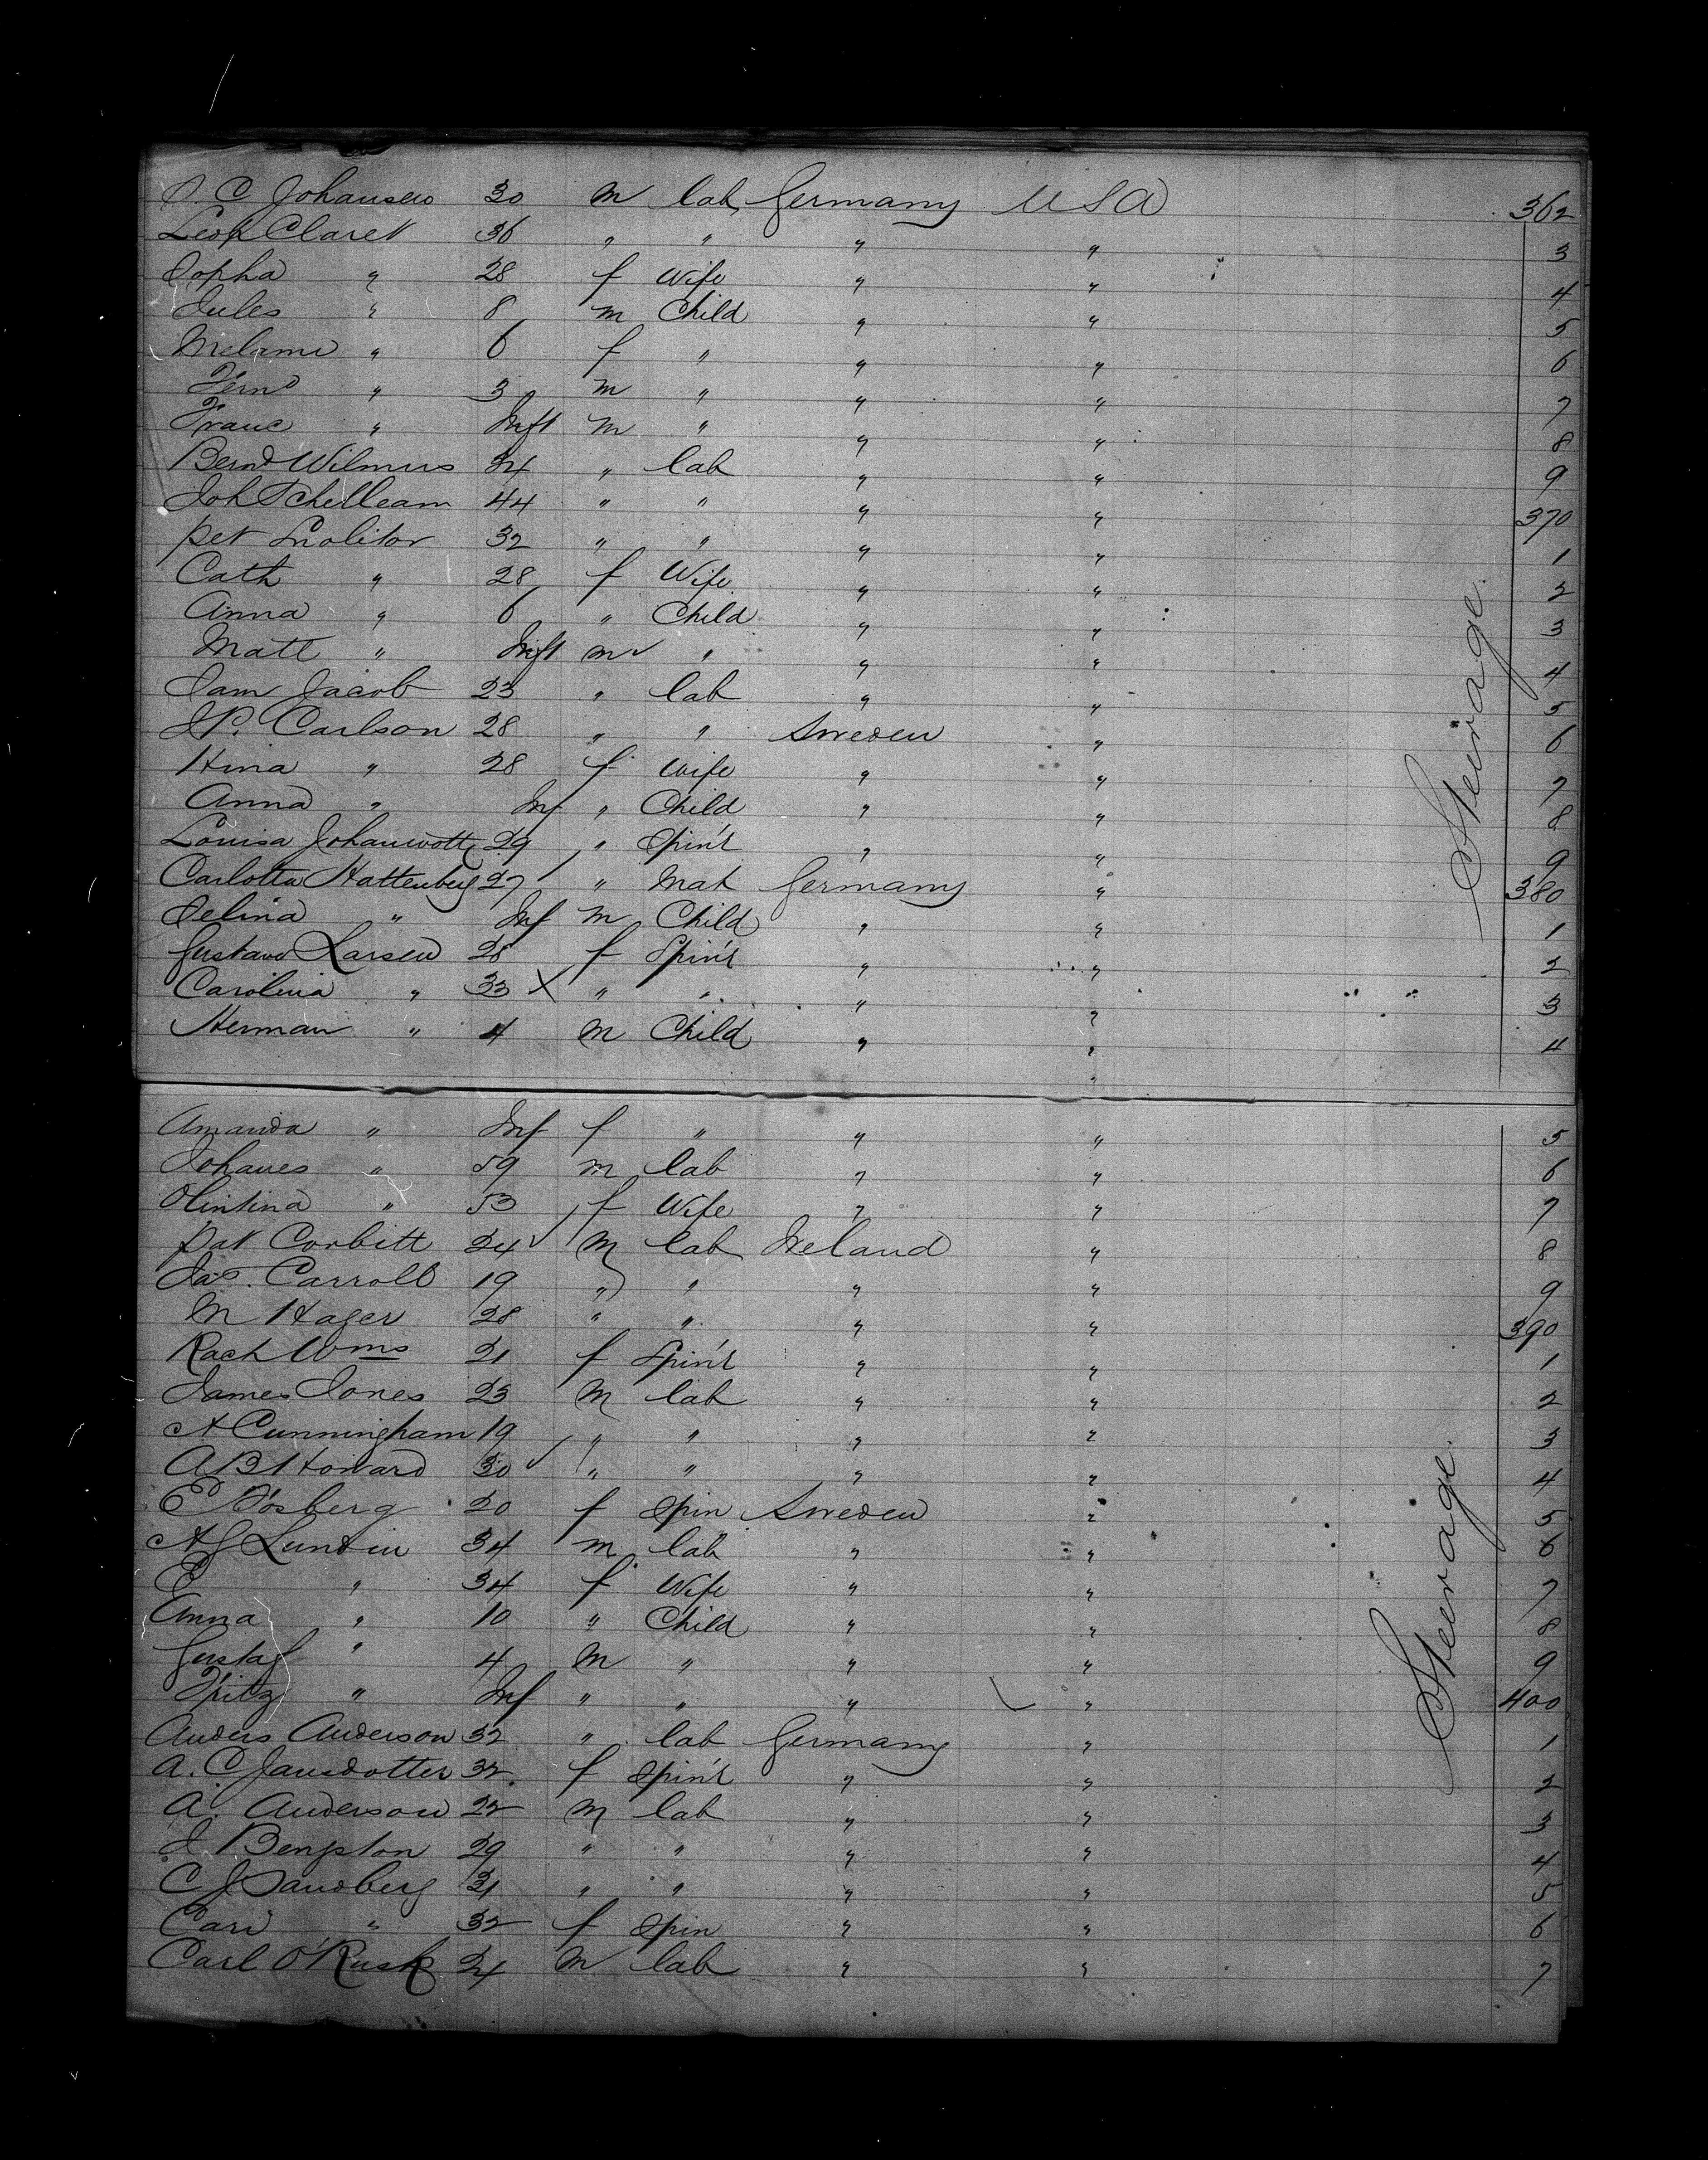 P. C Johansen 30 m lab Germany USA 362
Leop Claret 36 " " " " 3
Sopha " 28 f Wife " " 4
Jules " 8 m Child " " 5
Melami " 6 f " " " 6
Fernd " 3 m " " " 7
Franc " Inft m " " " 8
Bernd Wilmus 34 " lab " " 9
Joh Schelleam 44 " " " " 370
Pet Molitor 32 " " " " 1
Cath " 28 f Wife " " 2
Anna " 6 " Child " " 3
Matt " Inft m " " " 4
Sam Jacob 23 " lab " " 5
J P. Carlson 28 " " Sweden " 6
Hina " 28 f Wife " " 7
Anna " Inf " Child " " 8
Louisa 29 " Spin't " " 9
Carlotta Hattenberg 27 " Mat Germany " 380
Selina " Inf m Child " " 1
Gustava Larsen 28 f Spin't " " 2
Carolina " 33 X " " " " 3
Herman " 4 m Child " " 4
Steerage.
Amanda " Inf f " " " 5
Johanes " 59 m lab " " 6
Olintina " 53 f Wife " " 7
Pat Corbitt 24 m lab Ireland " 8
Jas. Carroll 19 " " " " 9
M Hager 28 " " " " 390
Rach Wms 21 f Spin't " " 1
James Jones 23 m lab " " 2
A Cunningham 19 " " " " 3
A B Howard 30 " " " " 4
E Fosberg 20 f Spin Sweden " 5
A G Lundin 34 m lab " " 6
E " 34 f Wife " " 7
Anna " 10 " Child " " 8
Gustaf " 4 m " " " 9
Fritz " Inf " " " " 400
Anders Anderson 32 " lab Germany " 1
A. C Jansdotter 32 f Spin't " " 2
A. Anderson 22 m lab " " 3
J Bengston 29 " " " " 4
C J Sandberg 31 " " " " 5
Cari " 32 f Spin " " 6
Carl O'Rusk 24 m lab " " 7
Steerage.